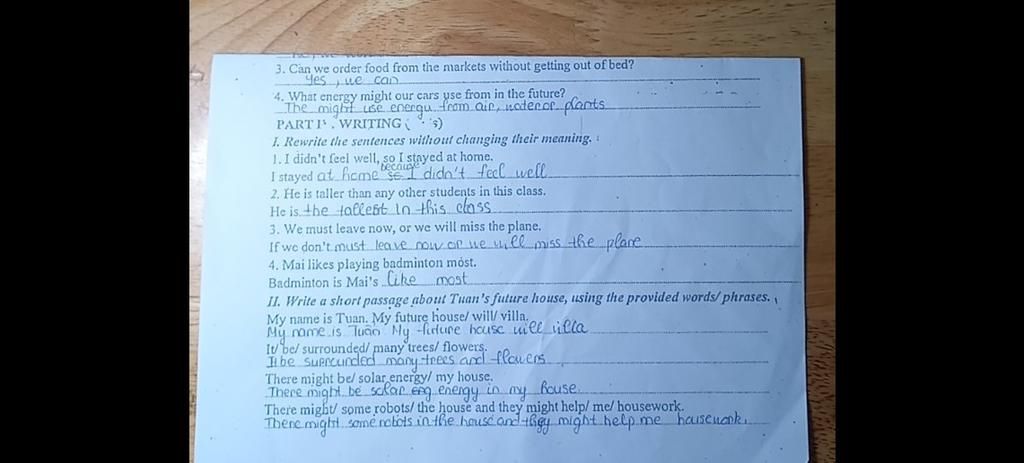 3. Can we order food from the markets without getting out of bed?
Yes, we can
4. What energy might our cars use from in the future?
The might use energu from air, or plants
PART . WRITING ( 's)
I. Rewrite the sentences without changing their meaning.
1. I didn't feel well, so I stayed at home.
because
I stayed at home I didn't feel well
2. He is taller than any other students in this class.
He is the tallest in this class
3. We must leave now, or we will miss the plane.
If we don't must leave now or we will miss the plane
4. Mai likes playing badminton most.
Badminton is Mai's like most
II. Write a short passage about Tuan's future house, using the provided words/ phrases.
My name is Tuan. My future house/ will/ villa.
My name is Tuan My future house will villa
It/ be/ surrounded/ many trees/ flowers.
It be surrounded many trees and flowers
There might be/ solar energy/ my house.
There might be solar energy in my house.
There might/ some robots/ the house and they might help/ me/ housework.
There might some robots in the house and they might help me housework.